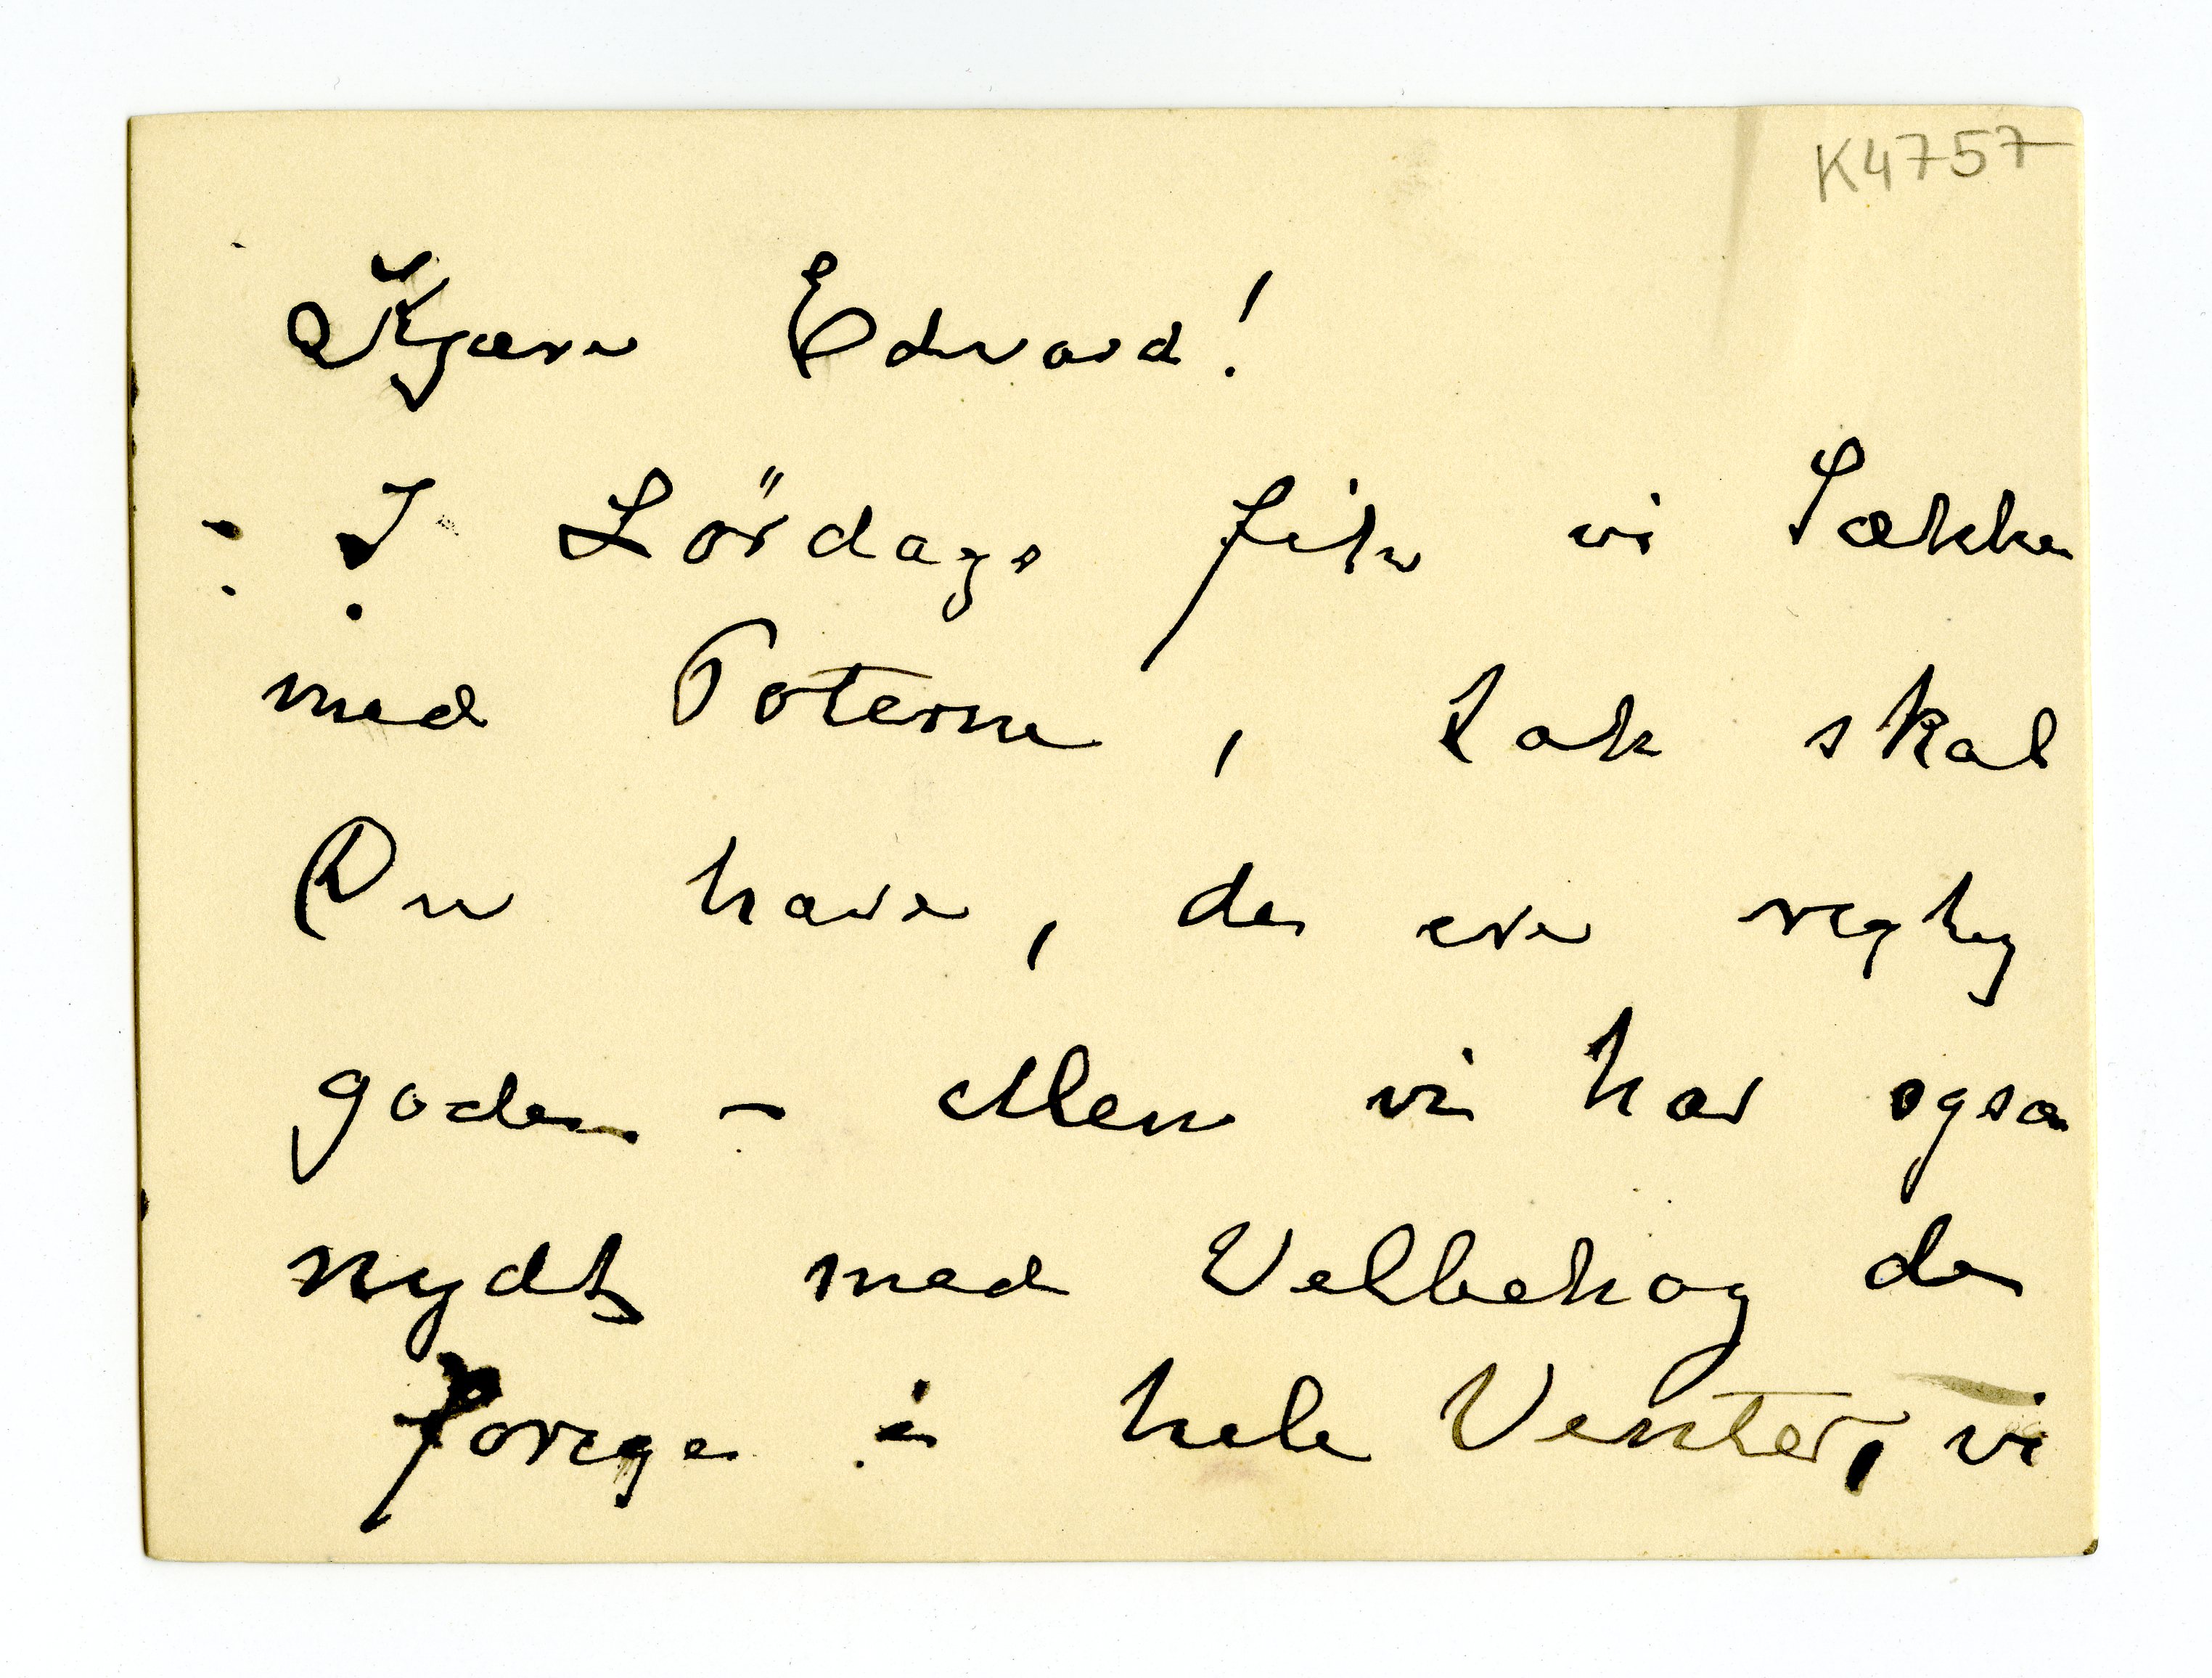 K4757
Kjære Edvard!
I Lördags fik vi Sækken
med Poterne, tak skal
Du have, de ere regtig
gode. – Men vi har ogsa
nydt med Velbehag de
forige i hele Venter, vi